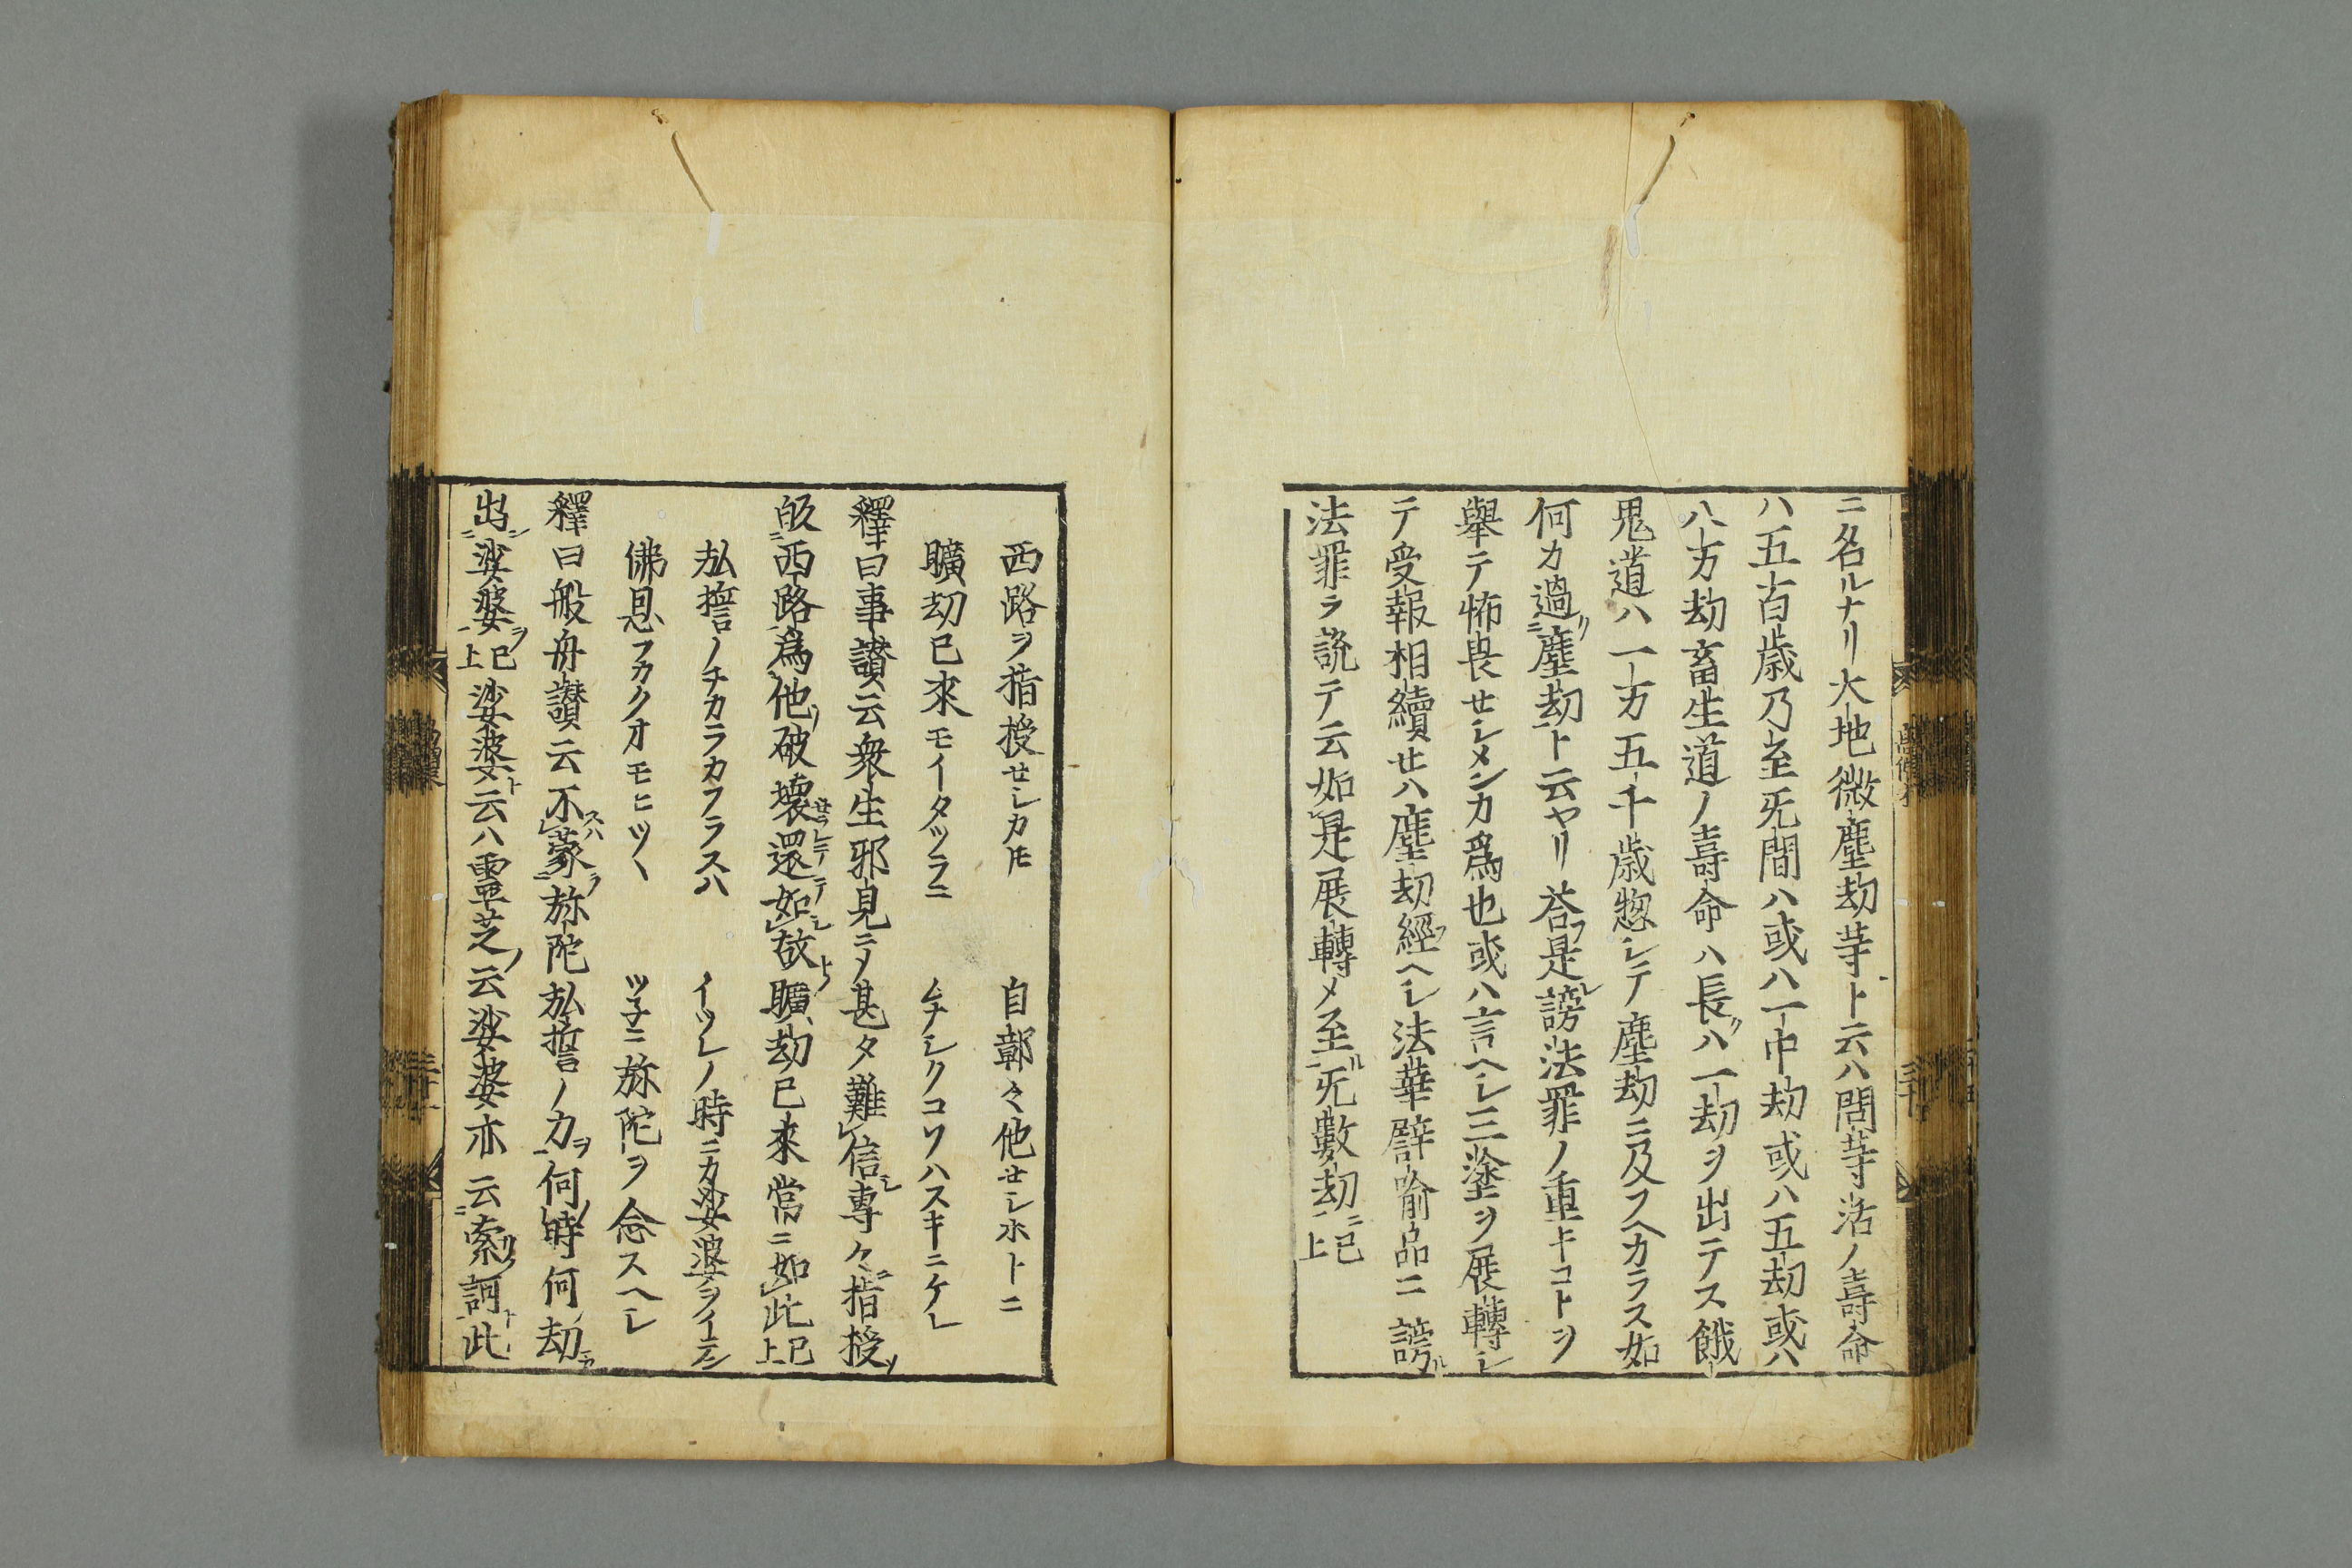 ニ名ルナリ大地微塵劫等ト云ハ問等活ノ壽命
ハ五百歳乃至无間ハ或ハ一中劫或ハ五劫或ハ
八万劫畜生道ノ壽命ハ長ハ一劫ヲ出テス餓
鬼道ハ一万五千歳惣シテ塵劫ニ及フヘカラス如
何カ過塵劫ト云ヤリ荅是謗法罪ノ重キコトヲ
舉テ怖畏セシメンカ爲也或ハ言ヘシ三塗ヲ展轉シ
テ受報相續セハ塵劫經ヘシ法華譬喻品ニ謗
法罪ヲ説テ云如是展轉メ至无數劫已上
西路ヲ指授セシカ𪜈　自鄣々他セシホトニ
曠劫已來モイタツラニ　ムナシクコソハスキニケレ
釋曰事讃云衆生邪見ニメ甚タ難信專々指授
皈西路爲他破壞還如故曠劫已來常ニ如此已上
弘誓ノチカラカフラスハ　イツレノ時ニカ娑婆ヲイテン
佛恩フカクオモヒツヽ　ツ子ニ弥陀ヲ念スヘシ
釋曰般舟讃云不蒙弥陀弘誓ノ力何時何劫
出娑婆已上娑婆ト云ハ靈芝云娑婆亦云索訶此